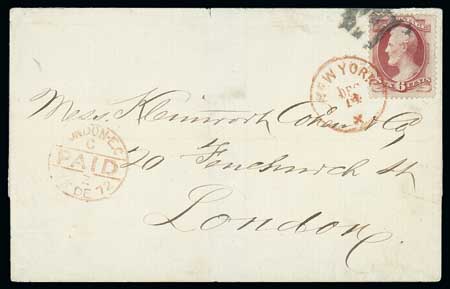 NEW YORK
DEC
14
Mess. Kleinwort Cohen & Co
20 Fenchurch St
London
LONDON.E.C
C
PAID
DE 72